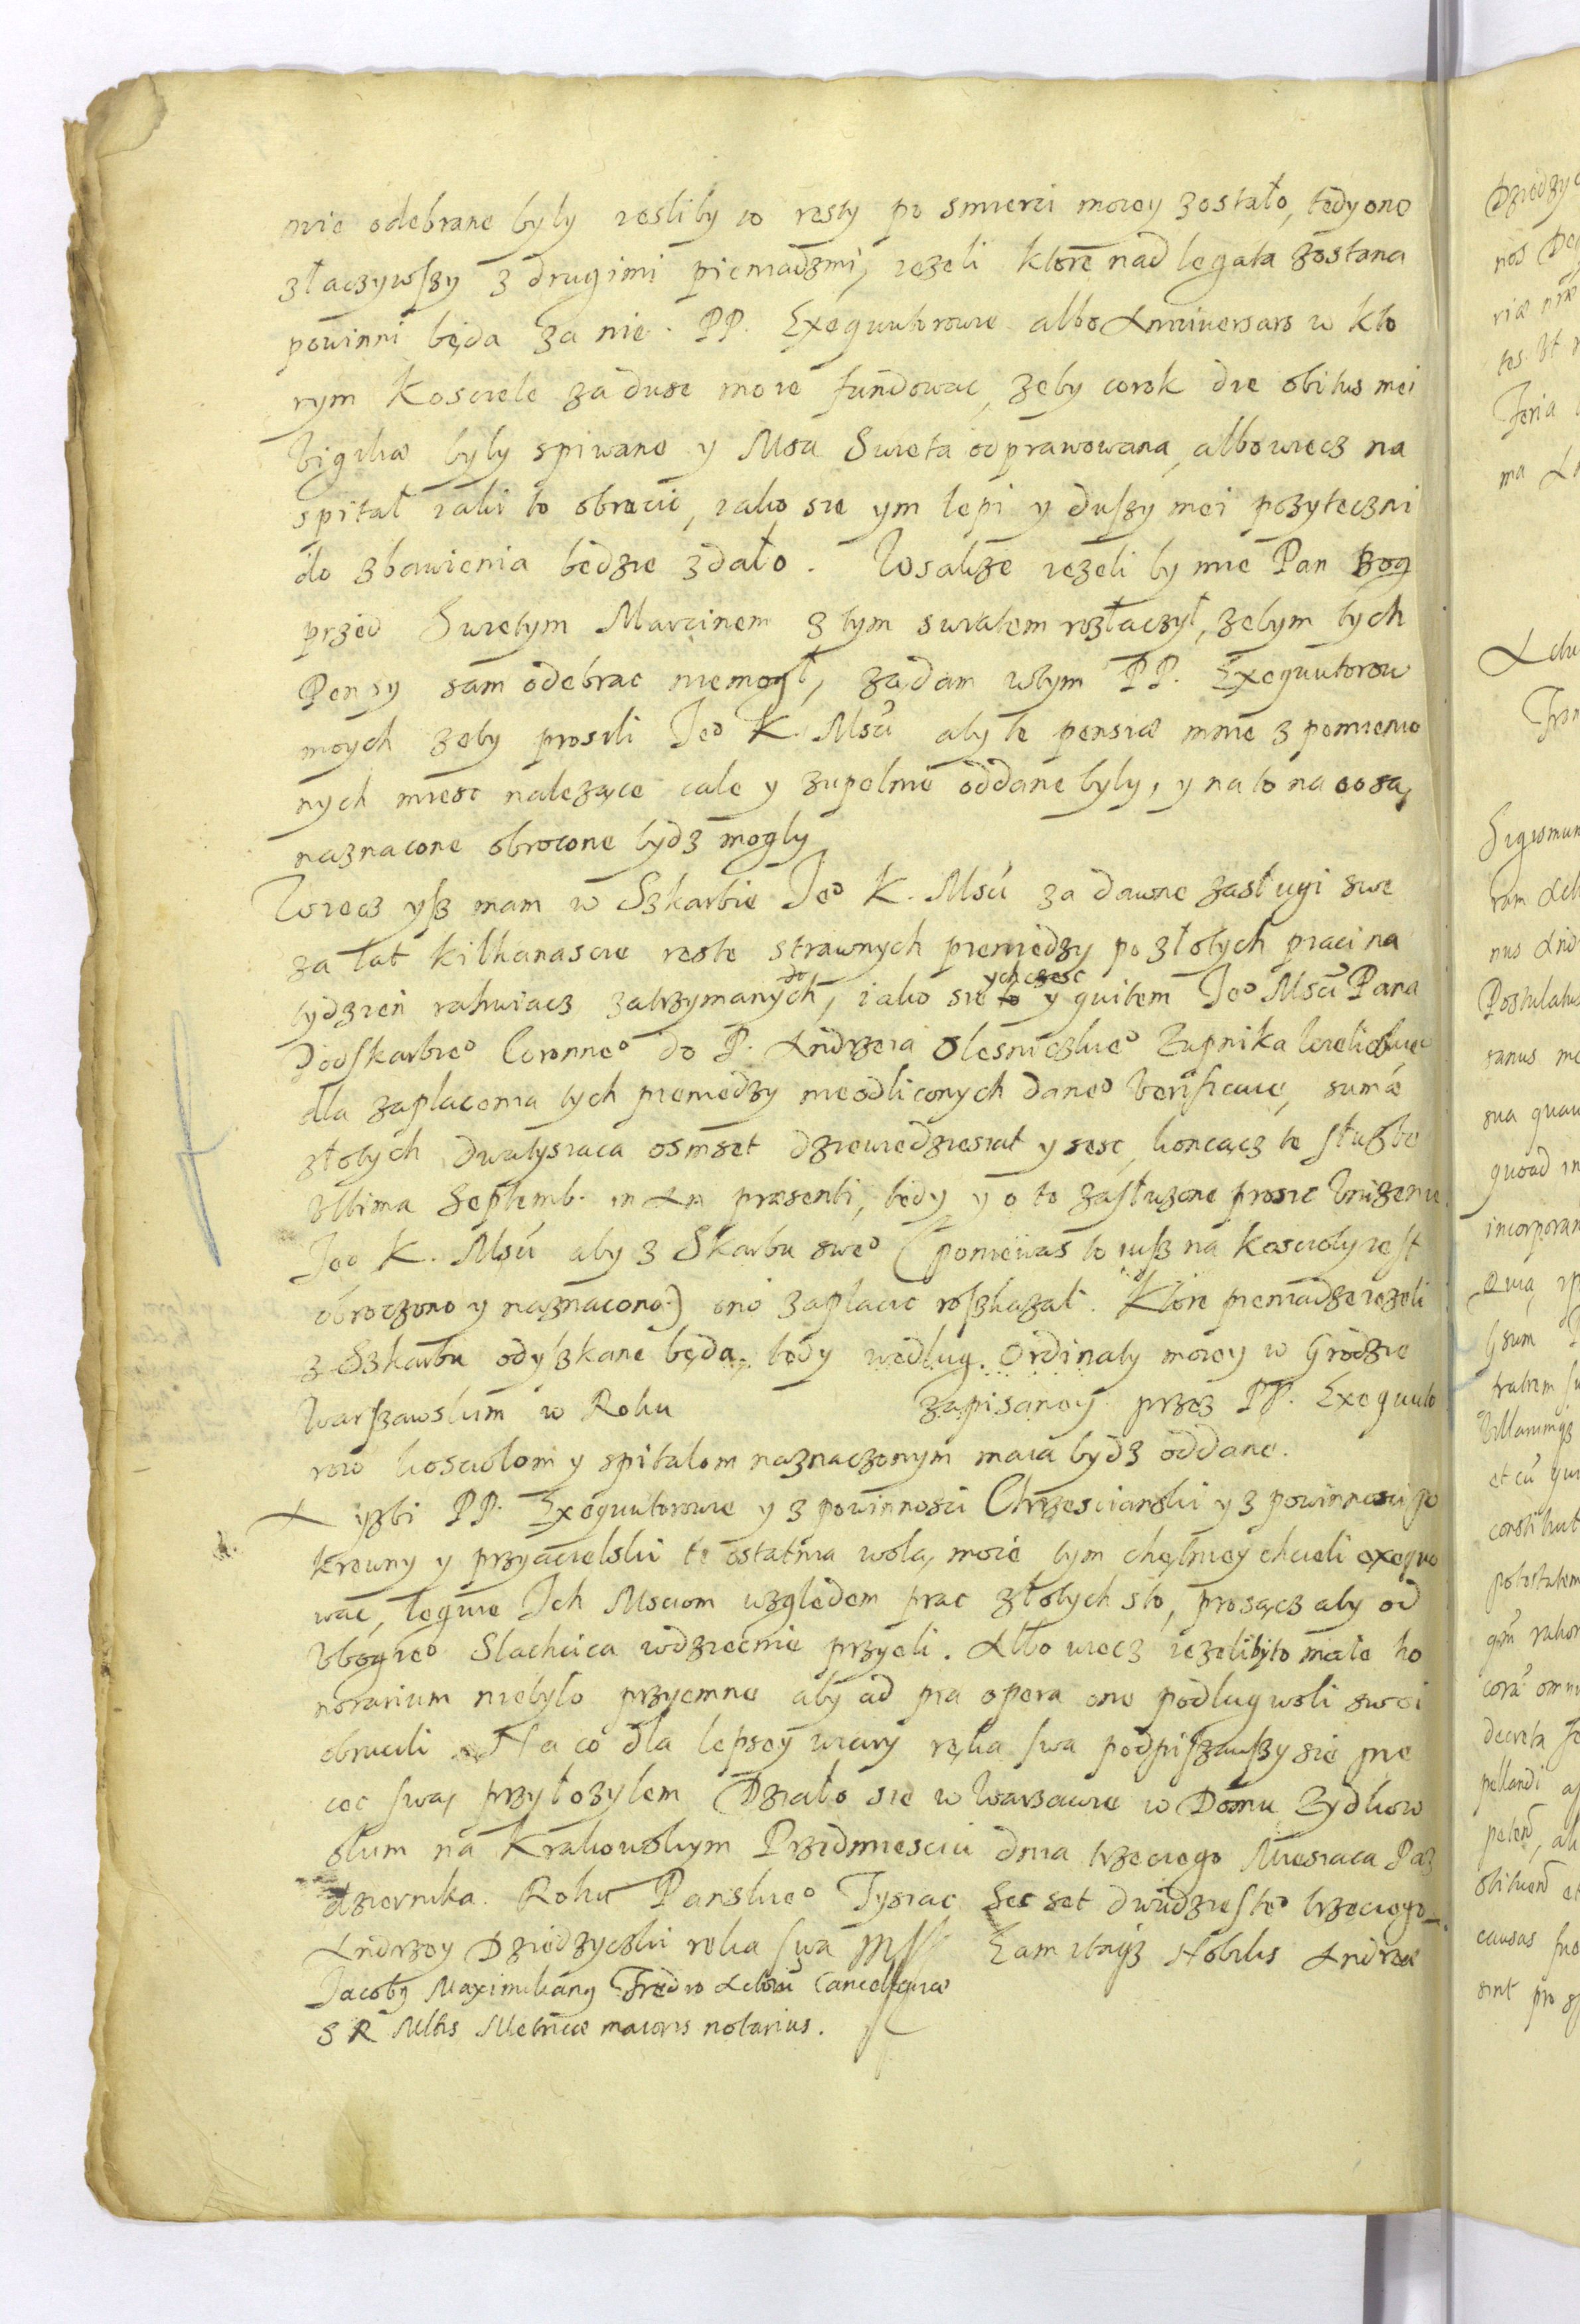 mie odebrane były iesliby co resty po smierci moiey zostało, tedy one
złaczywszy z drugimi pieniadzmi, iezeli ktore nad legata zostana
powinni będa za nie PP. Exequutorowie albo Anniuersars w kto
rym Kosciele za dusze moie fundowac, zeby corok die obitus mei
Vigiliæ były spiwane y Msa Swieta odprawowana, albo wiecz na
spital iaki to obrocic, iako sie ym lepi y duszy mei pozyteczni
do zbawienia bedzie zdało. Wsakze iezeli by mie Pan Bog
przed Swietym Marcinem z tym swiatem rozłaczył, zebym tych
Pensy sam odebrac niemogł, ządam wtym PP. Exequutorow
moych zeby prosili Jeo K. Msći aby te pensiæ mnie z pomienio
nych miesc nalezące cale y zupelnie oddane były, y na to na co są
naznacone obrocone bydz mogły
Wiecz ysz mam w Szkarbie Jeo K. Msći za dawne zasługi swe
za lat kilkanascie reste strawnych pieniedzy po złotych piaci na
tydzien rahuiacz zatrzymanych, iako sie to ych czesc y quitem Jeo Msći Pana
Podskarbieo Coronneo do P. Andrzeia Olesniczkieo Zupnika Wielickieo
dla zaplacenia tych pieniedzy nieodliconych daneo Verificuie, sumæ
złotych dwatysiaca osmset dziewiedziesiat y sesc, koncącz te słuzbe
Vltima Septemb. in An præsenti, tedy y o to zasłuzone prosic Vnizenie
Jeo K. Msći aby z Skarbu sweo (poniewas to iusz na koscioly iest
obroczono y naznacono) ono zaplacic roszkazał. Ktore pieniadze iezeli
z Szkarbu odyszkane będą, tedy według Ordinaty moiey w Grodzie
Warszawskim w Roku zapisaney przez PP. Exequuto
row kosciołom y spitalom naznaczonym maia bydz oddane.
A yzbi PP. Exequutorowie y z powinnosci Chrzescianski y z powinnosci po
krewny y przyacielski te ostatnia wolą moie tym chętniey chcieli exequo
wac, leguie Ich Msciom wzgledem prac złotych sto, prosącz aby od
Vbogieo Slachcica wdziecnie przyeli. Albo wiecz iezeliby to małe ho
norarium niebyło przyemne aby ad pia opera one podług woli swoi
obrucili. Na co dla lepsey wiary ręka swa podpiszawszy sie pie
cec swą przyłozylem Działo sie w Warsawie w Domu Zydkow
skim na Krakowskym Przedmiesciu dnia trzeciego Miesiaca Paz
dziernika. Roku Panskieo Tysiac Sec set dwudziesteo trzeciego
Andrzey Dziedzyczki reka swa mp Eam itaqz Nobilis Andreæ
Jacoby Maximiliany Fredro Actorū Cancellariæ
S R Mtis Metricæ maioris notarius.